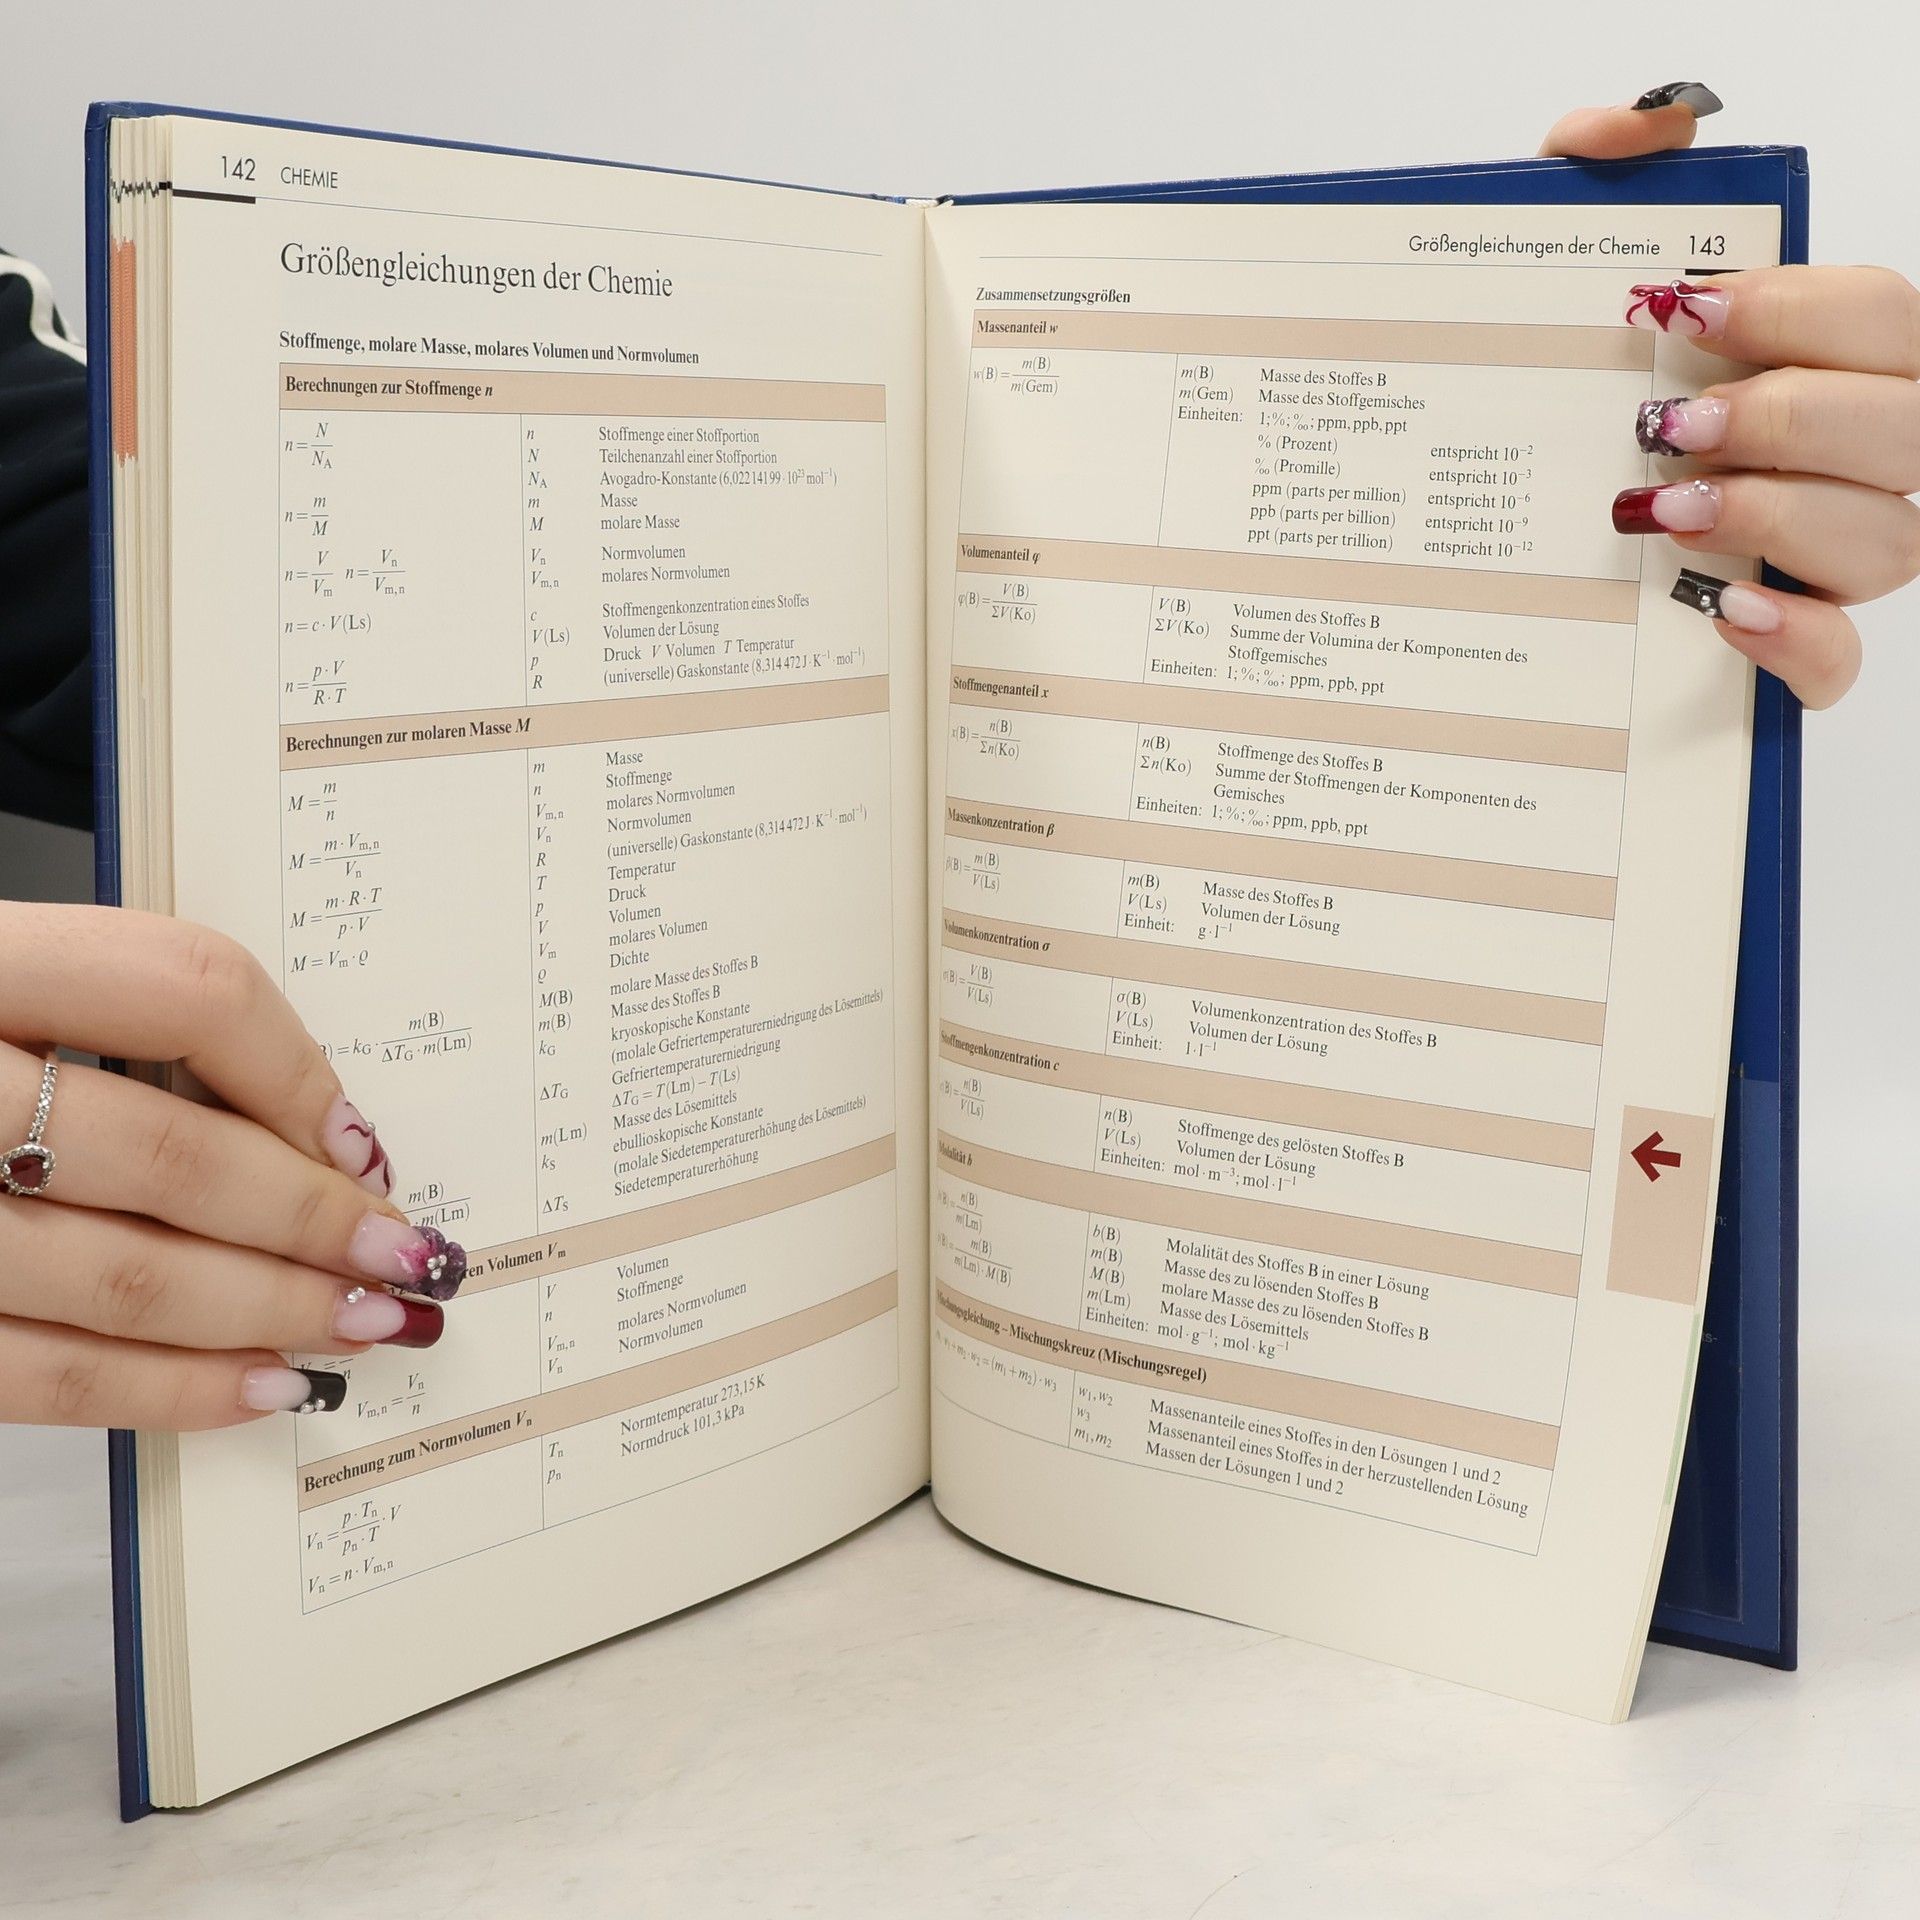 142 CHEMIE
Größengleichungen der Chemie
Stoffmenge, molare Masse, molares Volumen und Normvolumen
Berechnungen zur Stoffmenge n
n = N/N_A
n = m/M
n = V/V_m n = V_n/V_m,n
n = c · V(Ls)
n = p · V/R · T
n Stoffmenge einer Stoffportion
N Teilchenanzahl einer Stoffportion
N_A Avogadro-Konstante (6,022 141 99 · 10²³ mol⁻¹)
m Masse
M molare Masse
V_n Normvolumen
V_m,n molares Normvolumen
c Stoffmengenkonzentration eines Stoffes
V(Ls) Volumen der Lösung
p Druck V Volumen T Temperatur
R (universelle) Gaskonstante (8,314 472 J · K⁻¹ · mol⁻¹)
Berechnungen zur molaren Masse M
M = m/n
M = m · V_m,n/V_n
M = m · R · T/p · V
M = V_m · ϱ
) = k_G · m(B)/ΔT_G · m(Lm)
m(B)/· m(Lm)
m Masse
n Stoffmenge
V_m,n molares Normvolumen
V_n Normvolumen
R (universelle) Gaskonstante (8,314 472 J · K⁻¹ · mol⁻¹)
T Temperatur
p Druck
V Volumen
V_m molares Volumen
ϱ Dichte
M(B) molare Masse des Stoffes B
m(B) Masse des Stoffes B
k_G kryoskopische Konstante
(molale Gefriertemperaturerniedrigung des Lösemittels)
ΔT_G Gefriertemperaturerniedrigung
ΔT_G = T(Lm) − T(Ls)
m(Lm) Masse des Lösemittels
k_S ebullioskopische Konstante
(molale Siedetemperaturerhöhung des Lösemittels)
ΔT_S Siedetemperaturerhöhung
ren Volumen V_m
n
V_m,n = V_n/n
V Volumen
n Stoffmenge
V_m,n molares Normvolumen
V_n Normvolumen
Berechnung zum Normvolumen V_n
V_n = p · T_n/p_n · T · V
V_n = n · V_m,n
T_n Normtemperatur 273,15 K
p_n Normdruck 101,3 kPa
Größengleichungen der Chemie 143
Zusammensetzungsgrößen
Massenanteil w
w(B) = m(B)/m(Gem)
m(B) Masse des Stoffes B
m(Gem) Masse des Stoffgemisches
Einheiten: 1; %; ‰; ppm, ppb, ppt
% (Prozent) entspricht 10⁻²
‰ (Promille) entspricht 10⁻³
ppm (parts per million) entspricht 10⁻⁶
ppb (parts per billion) entspricht 10⁻⁹
ppt (parts per trillion) entspricht 10⁻¹²
Volumenanteil φ
φ(B) = V(B)/ΣV(Ko)
V(B) Volumen des Stoffes B
ΣV(Ko) Summe der Volumina der Komponenten des
Stoffgemisches
Einheiten: 1; %; ‰; ppm, ppb, ppt
Stoffmengenanteil x
x(B) = n(B)/Σn(Ko)
n(B) Stoffmenge des Stoffes B
Σn(Ko) Summe der Stoffmengen der Komponenten des
Gemisches
Einheiten: 1; %; ‰; ppm, ppb, ppt
Massenkonzentration β
β(B) = m(B)/V(Ls)
m(B) Masse des Stoffes B
V(Ls) Volumen der Lösung
Einheit: g · l⁻¹
Volumenkonzentration σ
σ(B) = V(B)/V(Ls)
σ(B) Volumenkonzentration des Stoffes B
V(Ls) Volumen der Lösung
Einheit: l · l⁻¹
Stoffmengenkonzentration c
c(B) = n(B)/V(Ls)
n(B) Stoffmenge des gelösten Stoffes B
V(Ls) Volumen der Lösung
Einheiten: mol · m⁻³; mol · l⁻¹
Molalität b
b(B) = n(B)/m(Lm)
b(B) = m(B)/m(Lm) · M(B)
b(B) Molalität des Stoffes B in einer Lösung
m(B) Masse des zu lösenden Stoffes B
M(B) molare Masse des zu lösenden Stoffes B
m(Lm) Masse des Lösemittels
Einheiten: mol · g⁻¹; mol · kg⁻¹
Mischungsgleichung – Mischungskreuz (Mischungsregel)
m₁ · w₁ + m₂ · w₂ = (m₁ + m₂) · w₃
w₁, w₂ Massenanteile eines Stoffes in den Lösungen 1 und 2
w₃ Massenanteil eines Stoffes in der herzustellenden Lösung
m₁, m₂ Massen der Lösungen 1 und 2